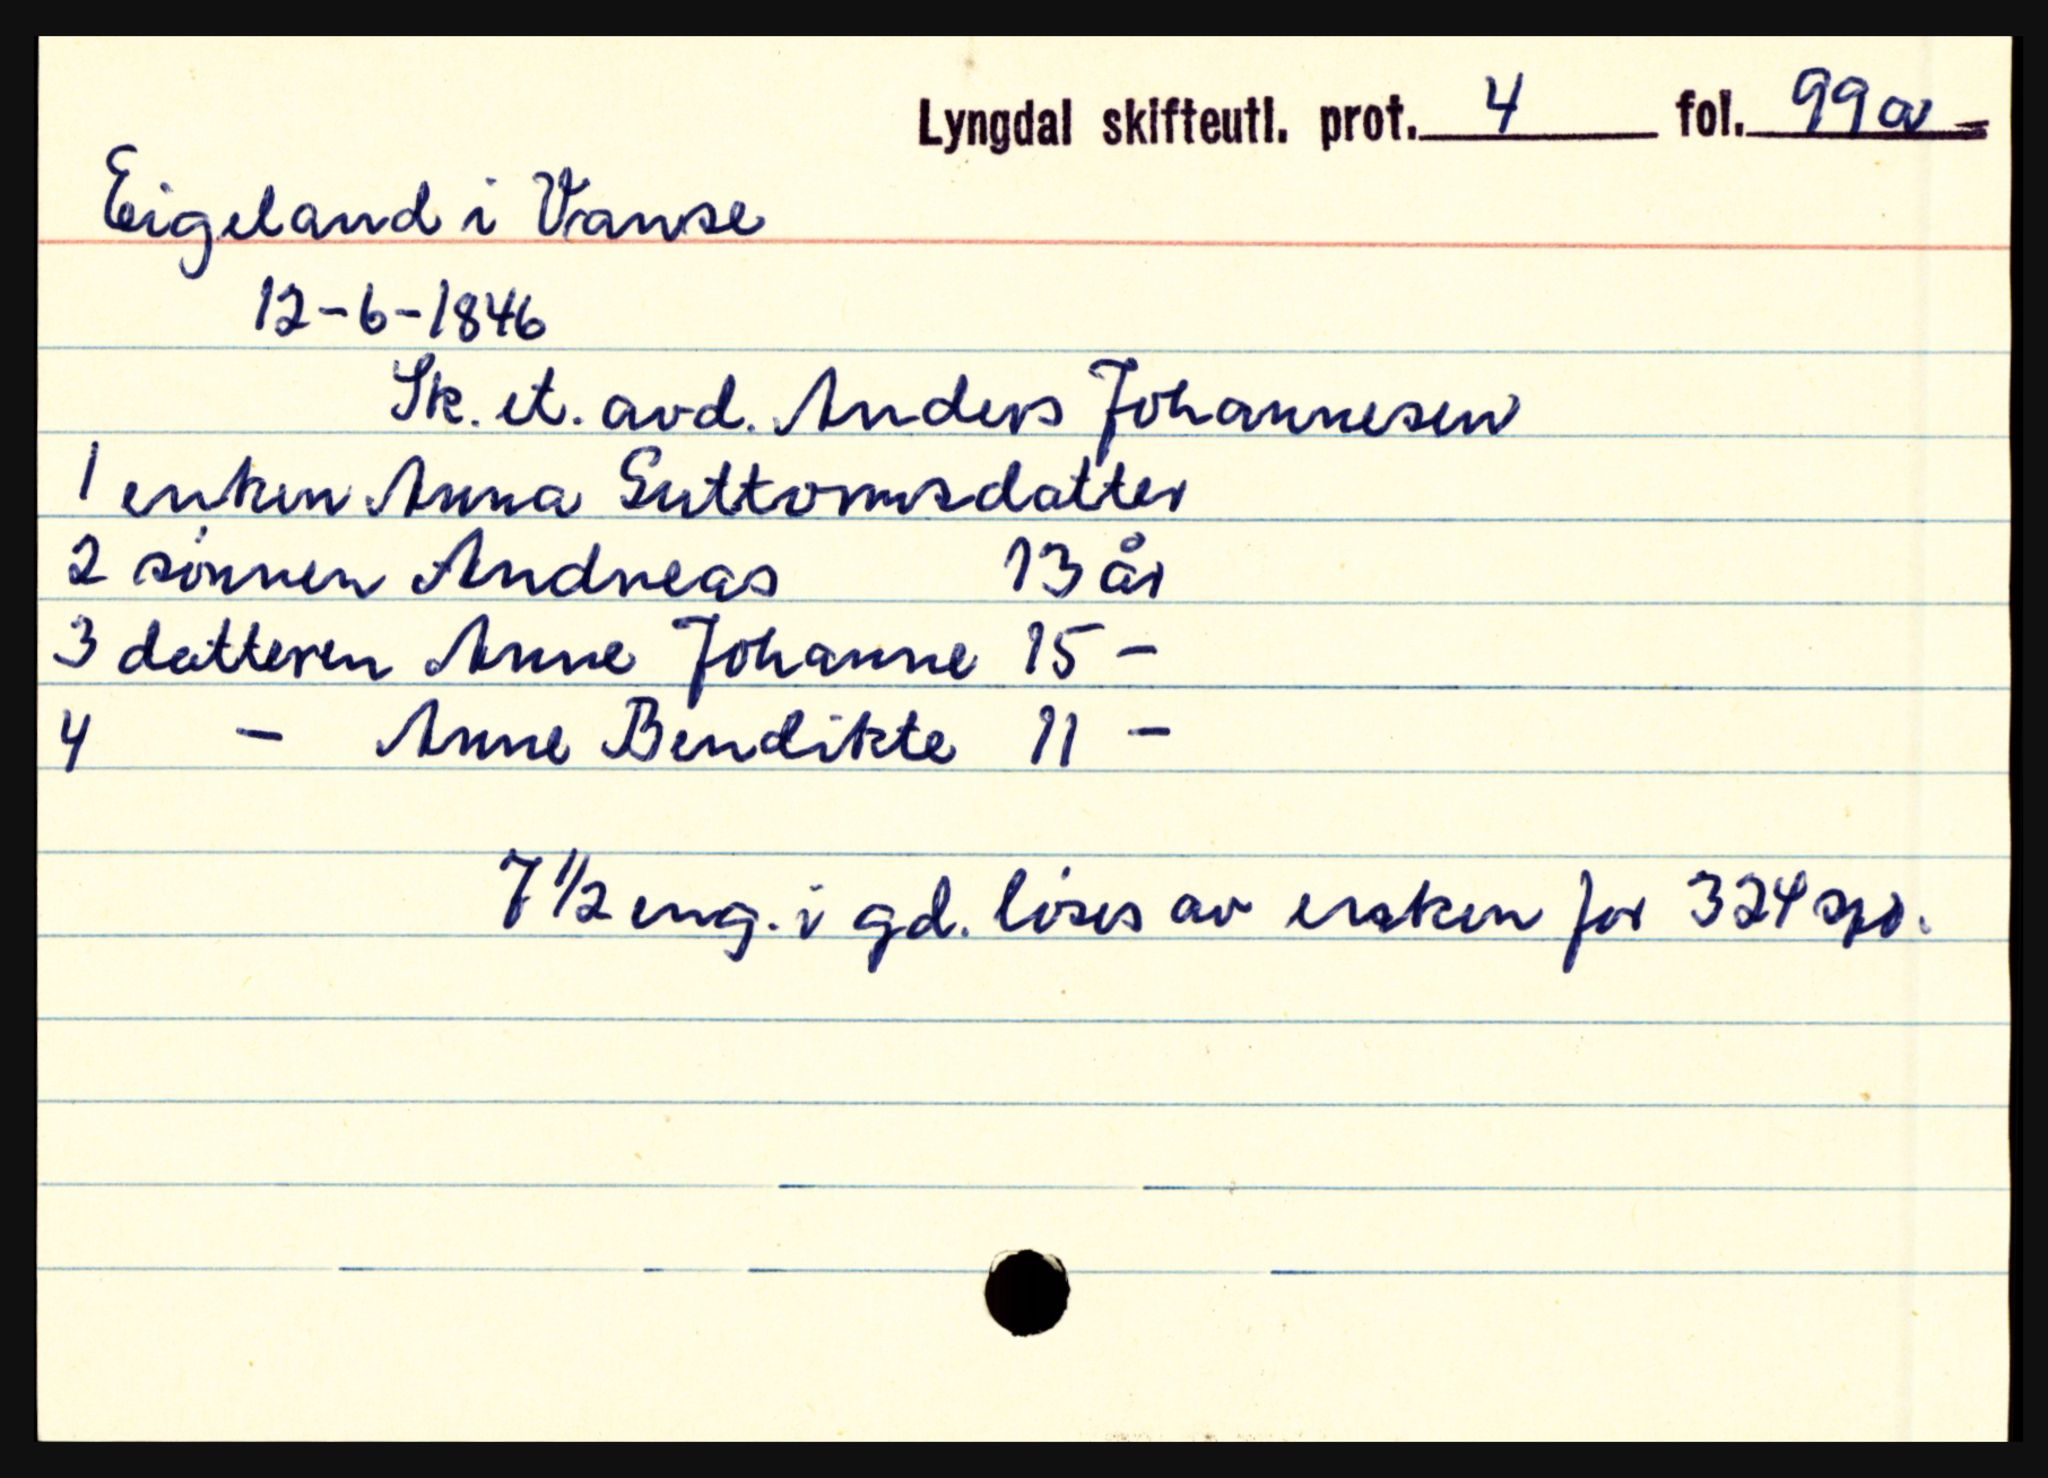 Lyngdal skifteutl. prot. 4 fol. 99a
Eigeland i Vanse
12-6-1846
Sk. et. avd. Anders Johannesen
1 enken Anna Guttormsdatter
2 sønnen Andreas 13 år
3 datteren Anne Johanne 15 -
4 - Anne Bendikte 11 -
7 1/2 eng. i gd. løses av enken for 324 spd.